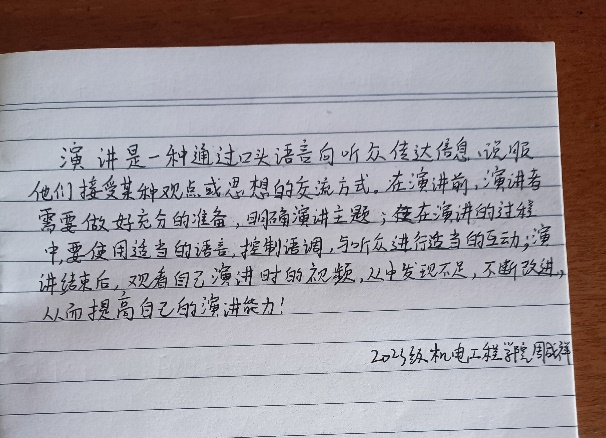 演讲是一种通过口头语言向听众传达信息、说服
他们接受某种观点或思想的交流方式。在演讲前,演讲者
需要做好充分的准备,明确演讲主题;在演讲的过程
中,要使用适当的语言,控制语调,与听众进行适当的互动;演
讲结束后,观看自己演讲时的视频,从中发现不足,不断改进,
从而提高自己的演讲能力!
2023级机电工程学院周成祥